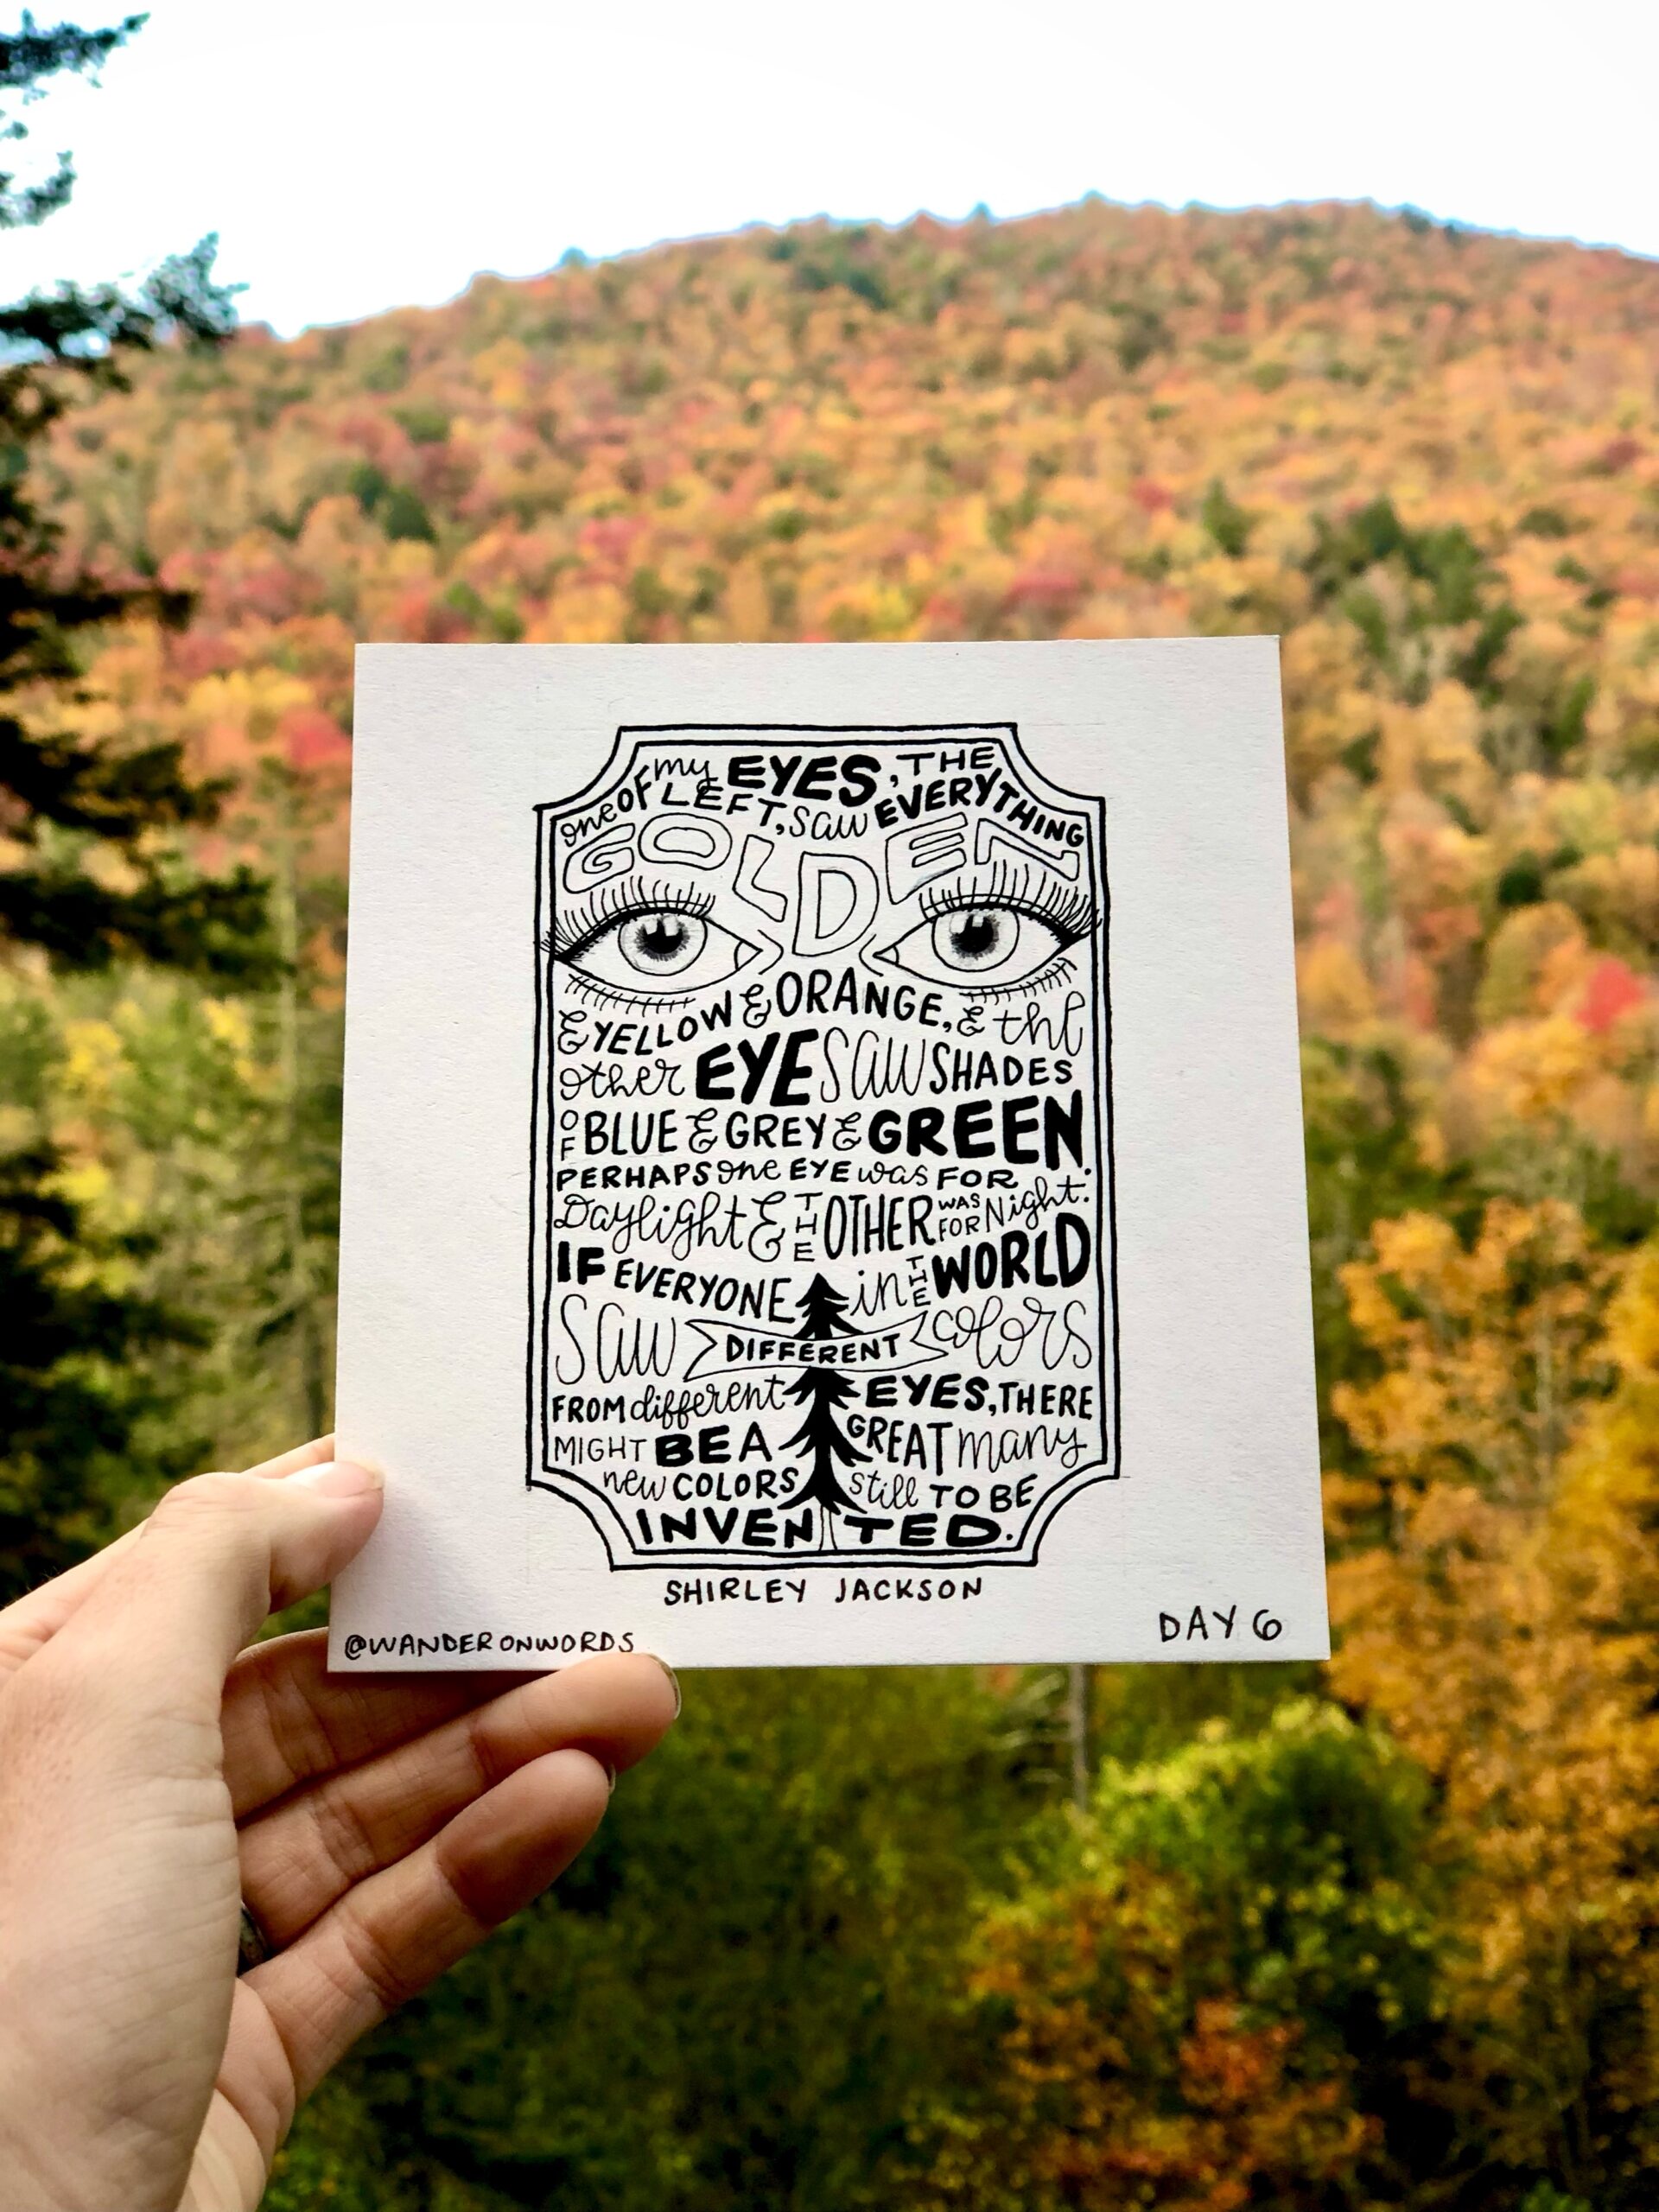 one OF my EYES, THE
LEFT, saw EVERYTHING
GOLDEN
& YELLOW & ORANGE, & the
other EYE saw SHADES
OF BLUE & GREY & GREEN.
PERHAPS one EYE was FOR
Daylight & THE OTHER WAS FOR Night.
IF EVERYONE in THE WORLD
saw DIFFERENT colors
FROM different EYES, THERE
MIGHT BE A GREAT many
new COLORS still TO BE
INVENTED.
SHIRLEY JACKSON
@WANDERONWORDS
DAY 6